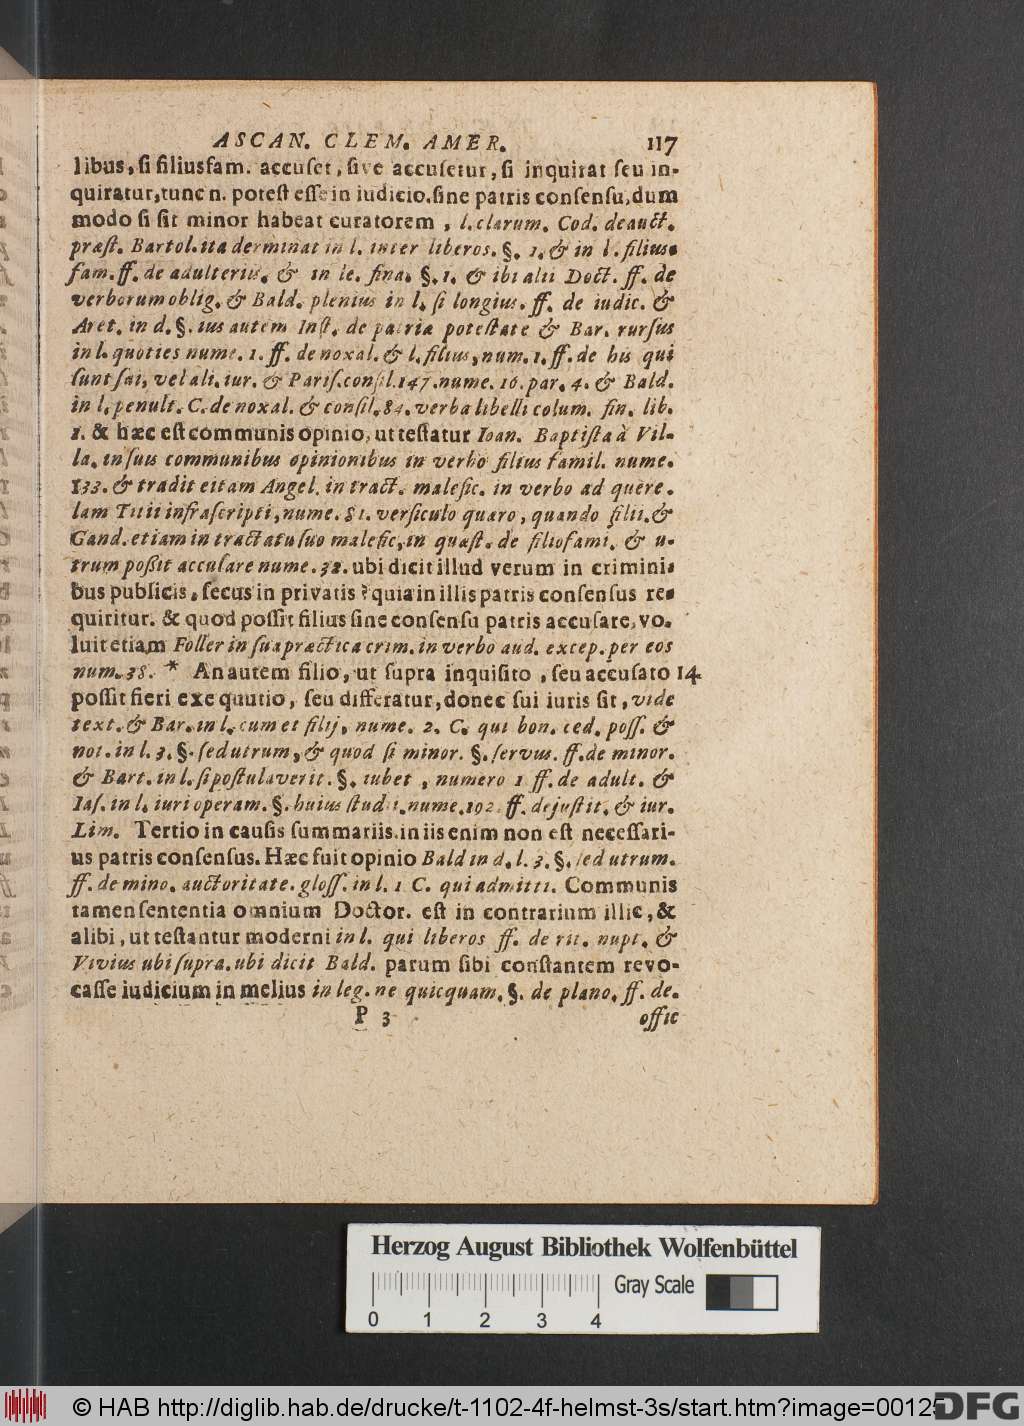 ASCAN. CLEM. AMER. 117
libus, ſi filiusfam. accuſet, ſive accuſetur, ſi inquirat ſeu in-
quiratur, tunc n. poteſt eſſe in iudicio. ſine patris conſenſu, dum
modo ſi ſit minor habeat curatorem, l. clarum. Cod. de auct.
præſt. Bartol. ita derminat in l. inter liberos. §. 1. & in l. filius.
fam. ff. de adulteriis. & in le. fina. §. 1. & ibi alii Doct. ff. de
verborum oblig. & Bald. plenius in l. ſi longius. ff. de iudic. &
Aret. in d. §. ius autem Inſt. de patria poteſtate & Bar. rurſus
in l. quoties nume. 1. ff. de noxal. & l. filius, num. 1. ff. de his qui
ſunt ſui, vel ali. iur. & Pariſ. conſil. 147. nume. 16. par. 4. & Bald.
in l. penult. C. de noxal. & conſil. 84. verba libelli colum. fin. lib.
1. & hæc eſt communis opinio, ut teſtatur Ioan. Baptiſta à Vil-
la. in ſuis communibus opinionibus in verbo filius famil. nume.
133. & tradit etiam Angel. in tract. malefic. in verbo ad quere.
lam Titii infraſcripti, nume. 81. verſiculo quæro, quando filii. &
Gand. etiam in tractatu ſuo malefic, in quæſt. de filiofami. & u-
trum poßit accuſare nume. 32. ubi dicit illud verum in crimini-
bus publicis, ſecus in privatis ? quia in illis patris conſenſus re-
quiritur. & quod poſſit filius ſine conſenſu patris accuſare, vo-
luit etiam Foller in ſua practica crim. in verbo aud. excep. per eos
num. 38. * An autem filio, ut ſupra inquiſito, ſeu accuſato 14
poſſit fieri exequutio, ſeu differatur, donec ſui iuris ſit, vide
text. & Bar. in l. cum et filij, nume. 2. C. qui bon. ced. poſſ. &
not. in l. 3. §. ſed utrum, & quod ſi minor. §. ſervus. ff. de minor.
& Bart. in l. ſi poſtulaverit. §. iubet, numero 1 ff. de adult. &
Iaſ. in l. iuri operam. §. huius ſtudii. nume. 102. ff. de juſtit. & iur.
Lim. Tertio in cauſis ſummariis. in iis enim non eſt neceſſari-
us patris conſenſus. Hæc fuit opinio Bald in d. l. 3. §. ſed utrum.
ff. de mino. auctoritate. gloſſ. in l. 1 C. qui admitti. Communis
tamen ſententia omnium Doctor. eſt in contrarium illic, &
alibi, ut teſtantur moderni in l. qui liberos ff. de rit. nupt. &
Vivius ubi ſupra. ubi dicit Bald. parum ſibi conſtantem revo-
caſſe iudicium in melius in leg. ne quicquam. §. de plano. ff. de.
P 3 offic
Herzog August Bibliothek Wolfenbüttel
Gray Scale
0 1 2 3 4
© HAB http://diglib.hab.de/drucke/t-1102-4f-helmst-3s/start.htm?image=00125
DFG